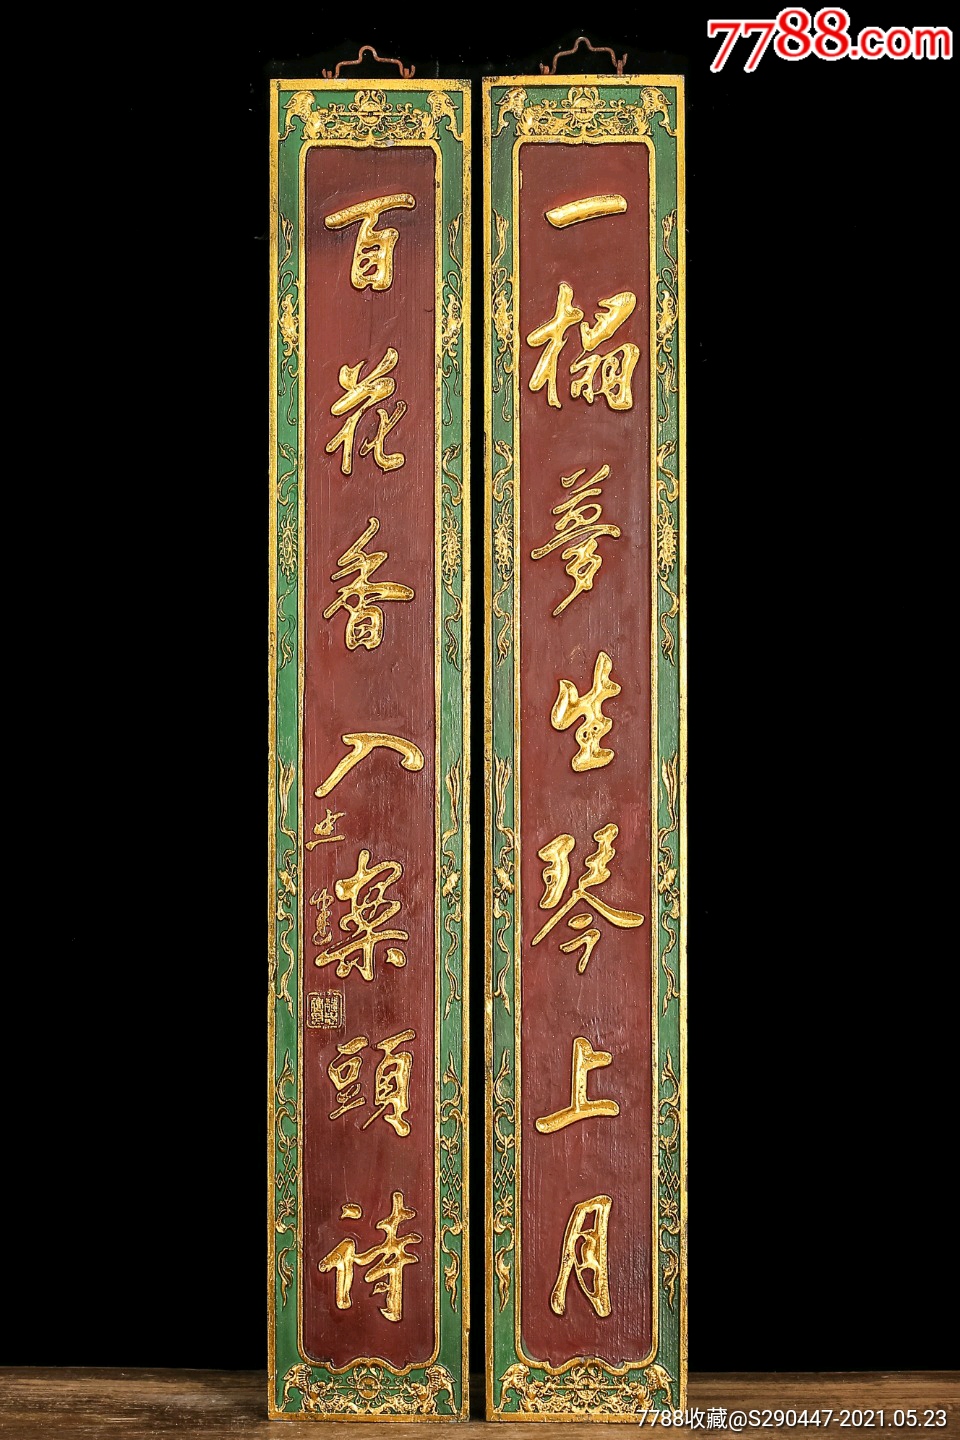 7788.com
一榻夢生琴上月
百花香入案頭詩
7788收藏@S290447-2021.05.23